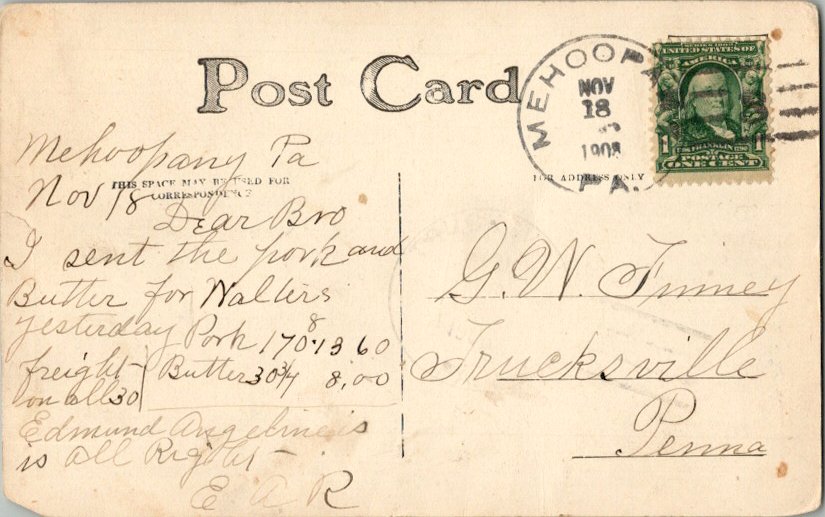 Post Card
MEHOOPA
NOV
18
1908
PA.
SERIES 1902
UNITED STATES OF
AMERICA
1 1
FRANKLIN
POSTAGE
ONE CENT
THIS SPACE MAY BE USED FOR
CORRESPONDENCE
FOR ADDRESS ONLY
Mehoopany Pa
Nov 18
Dear Bro
I sent the pork and
Butter for Walters
yesterday Pork 170 8 13 60
freight Butter 30 3/4 8,00
on all 30
Edmund Angeline is
is all Right
E A R
G. W. Finney
Trucksville
Penna